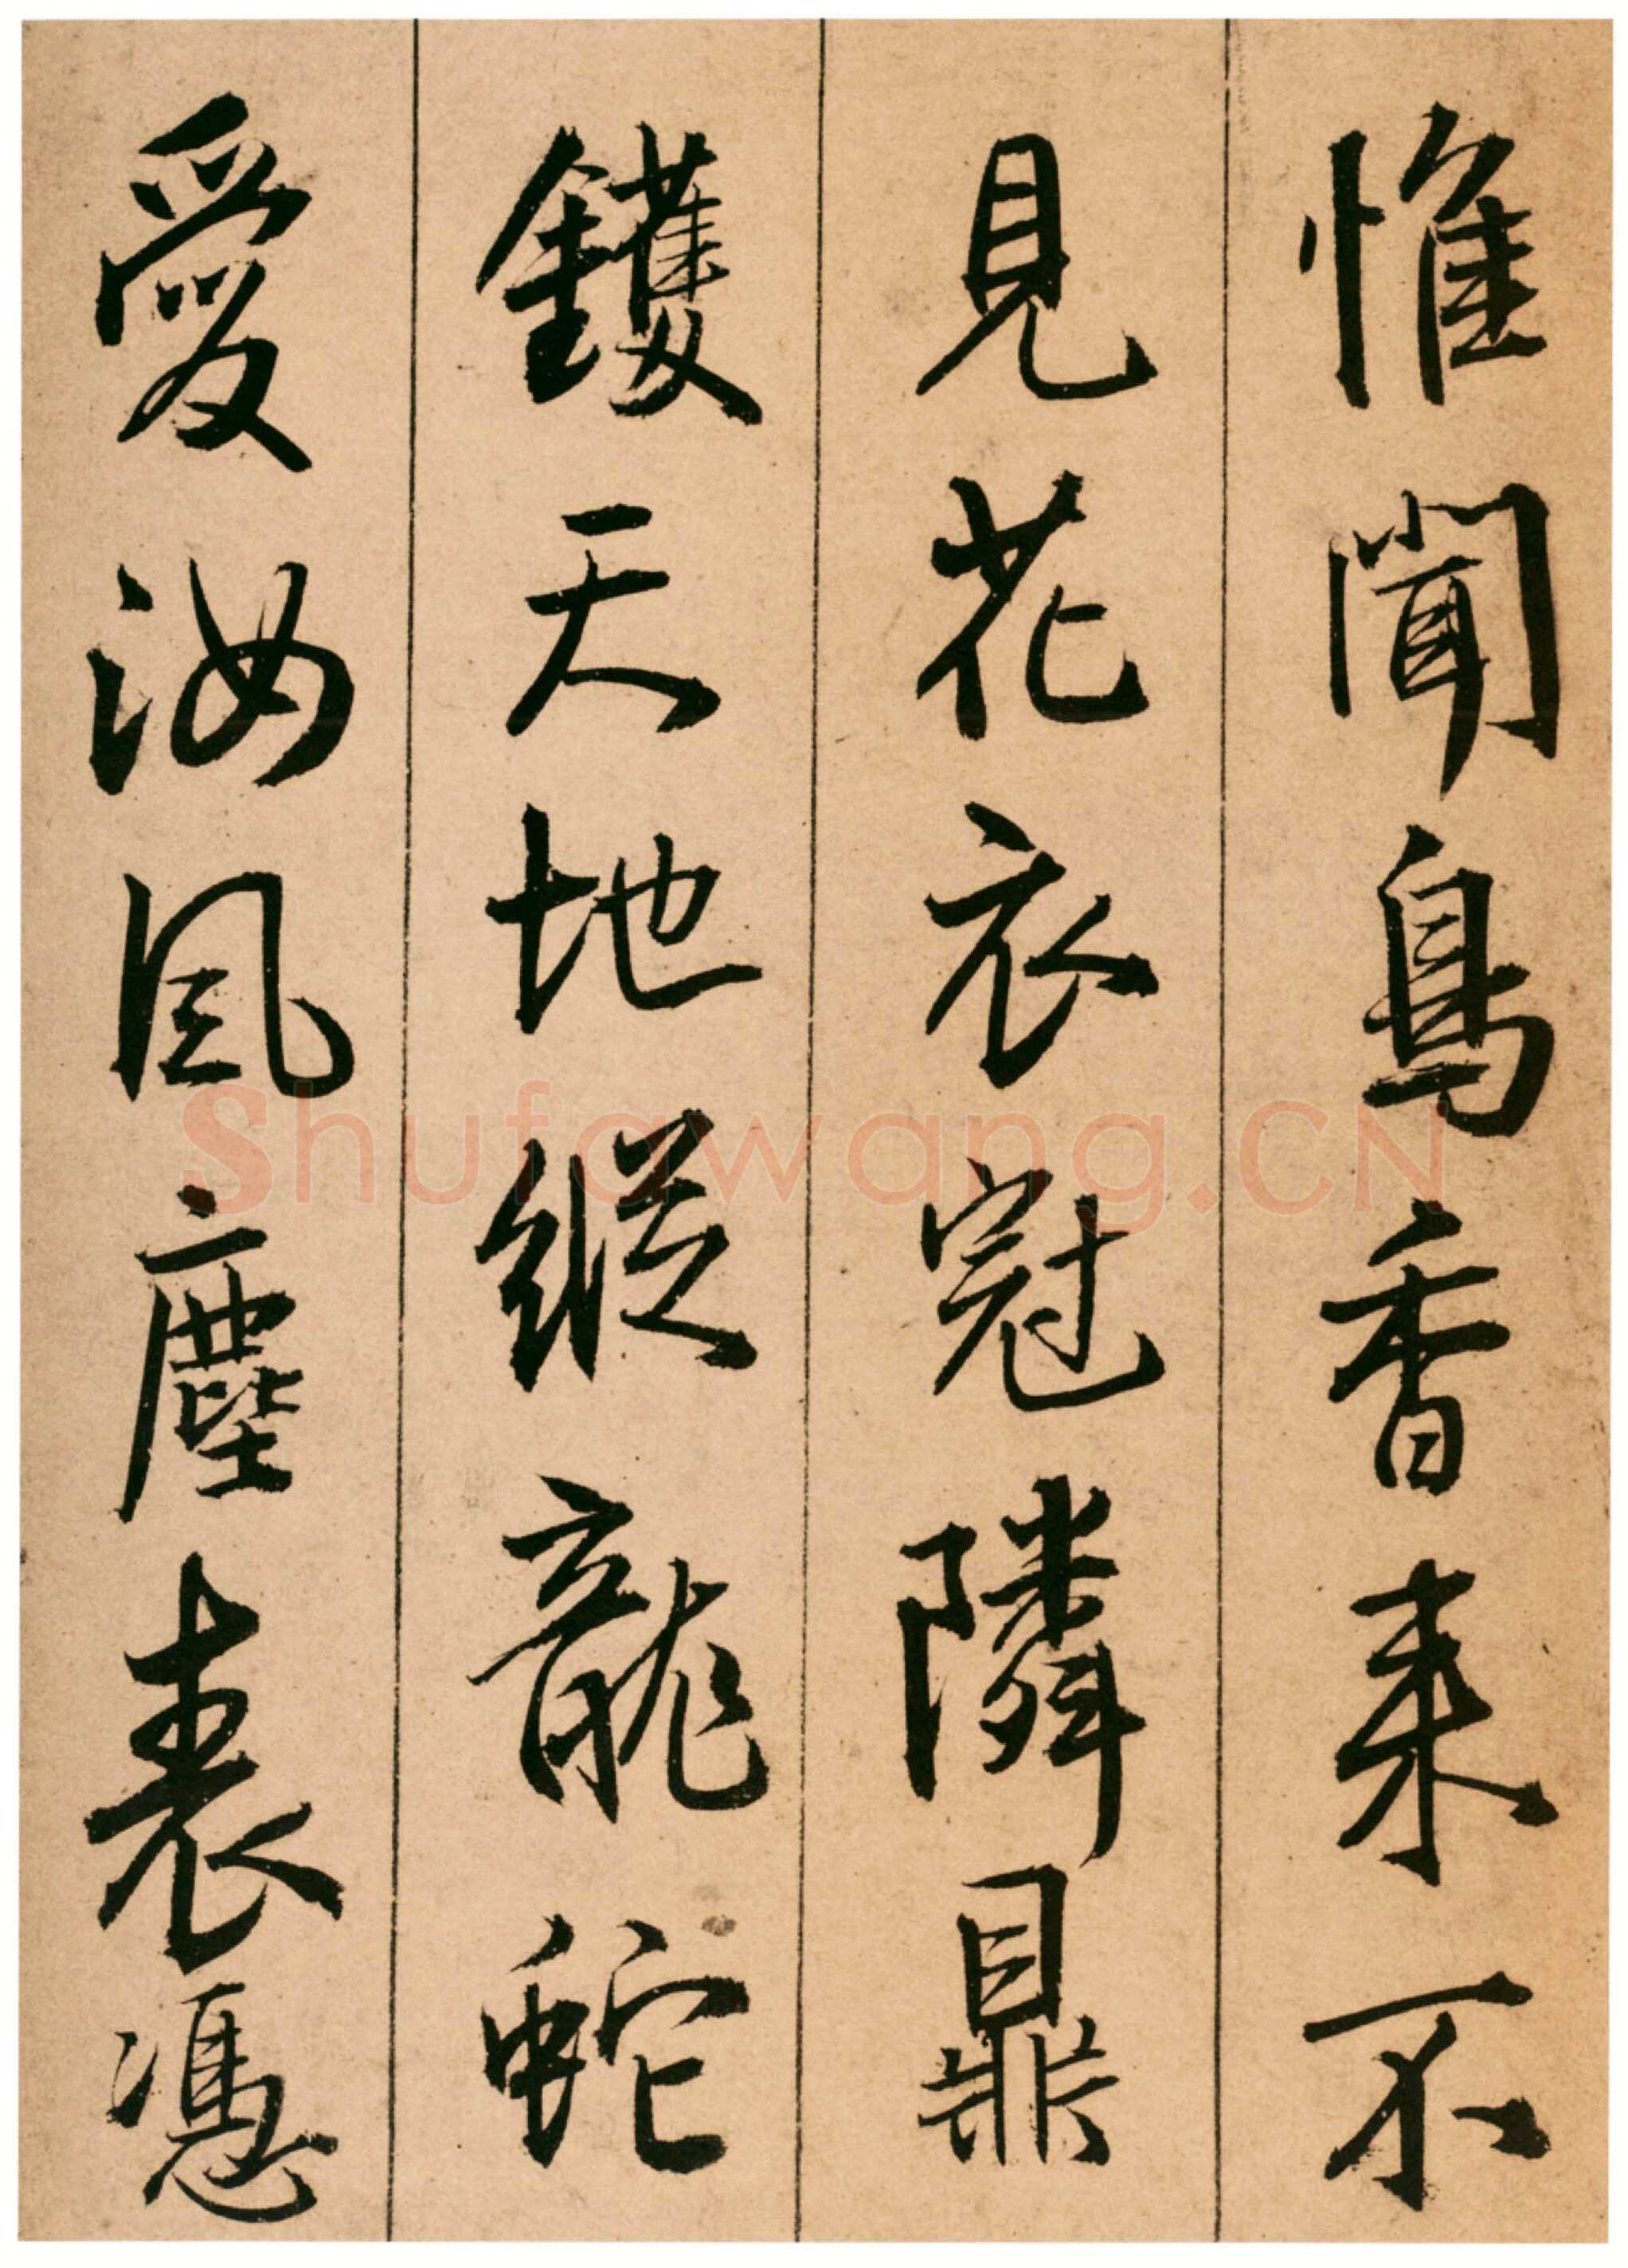 惟聞鳥香来不
見花衣冠隣鼎
鑊天地縱龍蛇
愛汝風塵表憑
Shufawang.CN